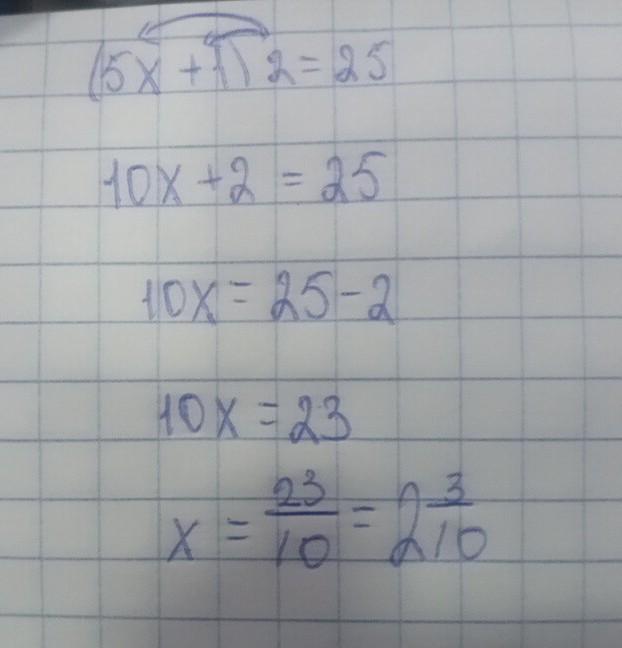 (5x + 1) 2 = 25
10x + 2 = 25
10x = 25 - 2
10x = 23
x = 23/10 = 2 3/10